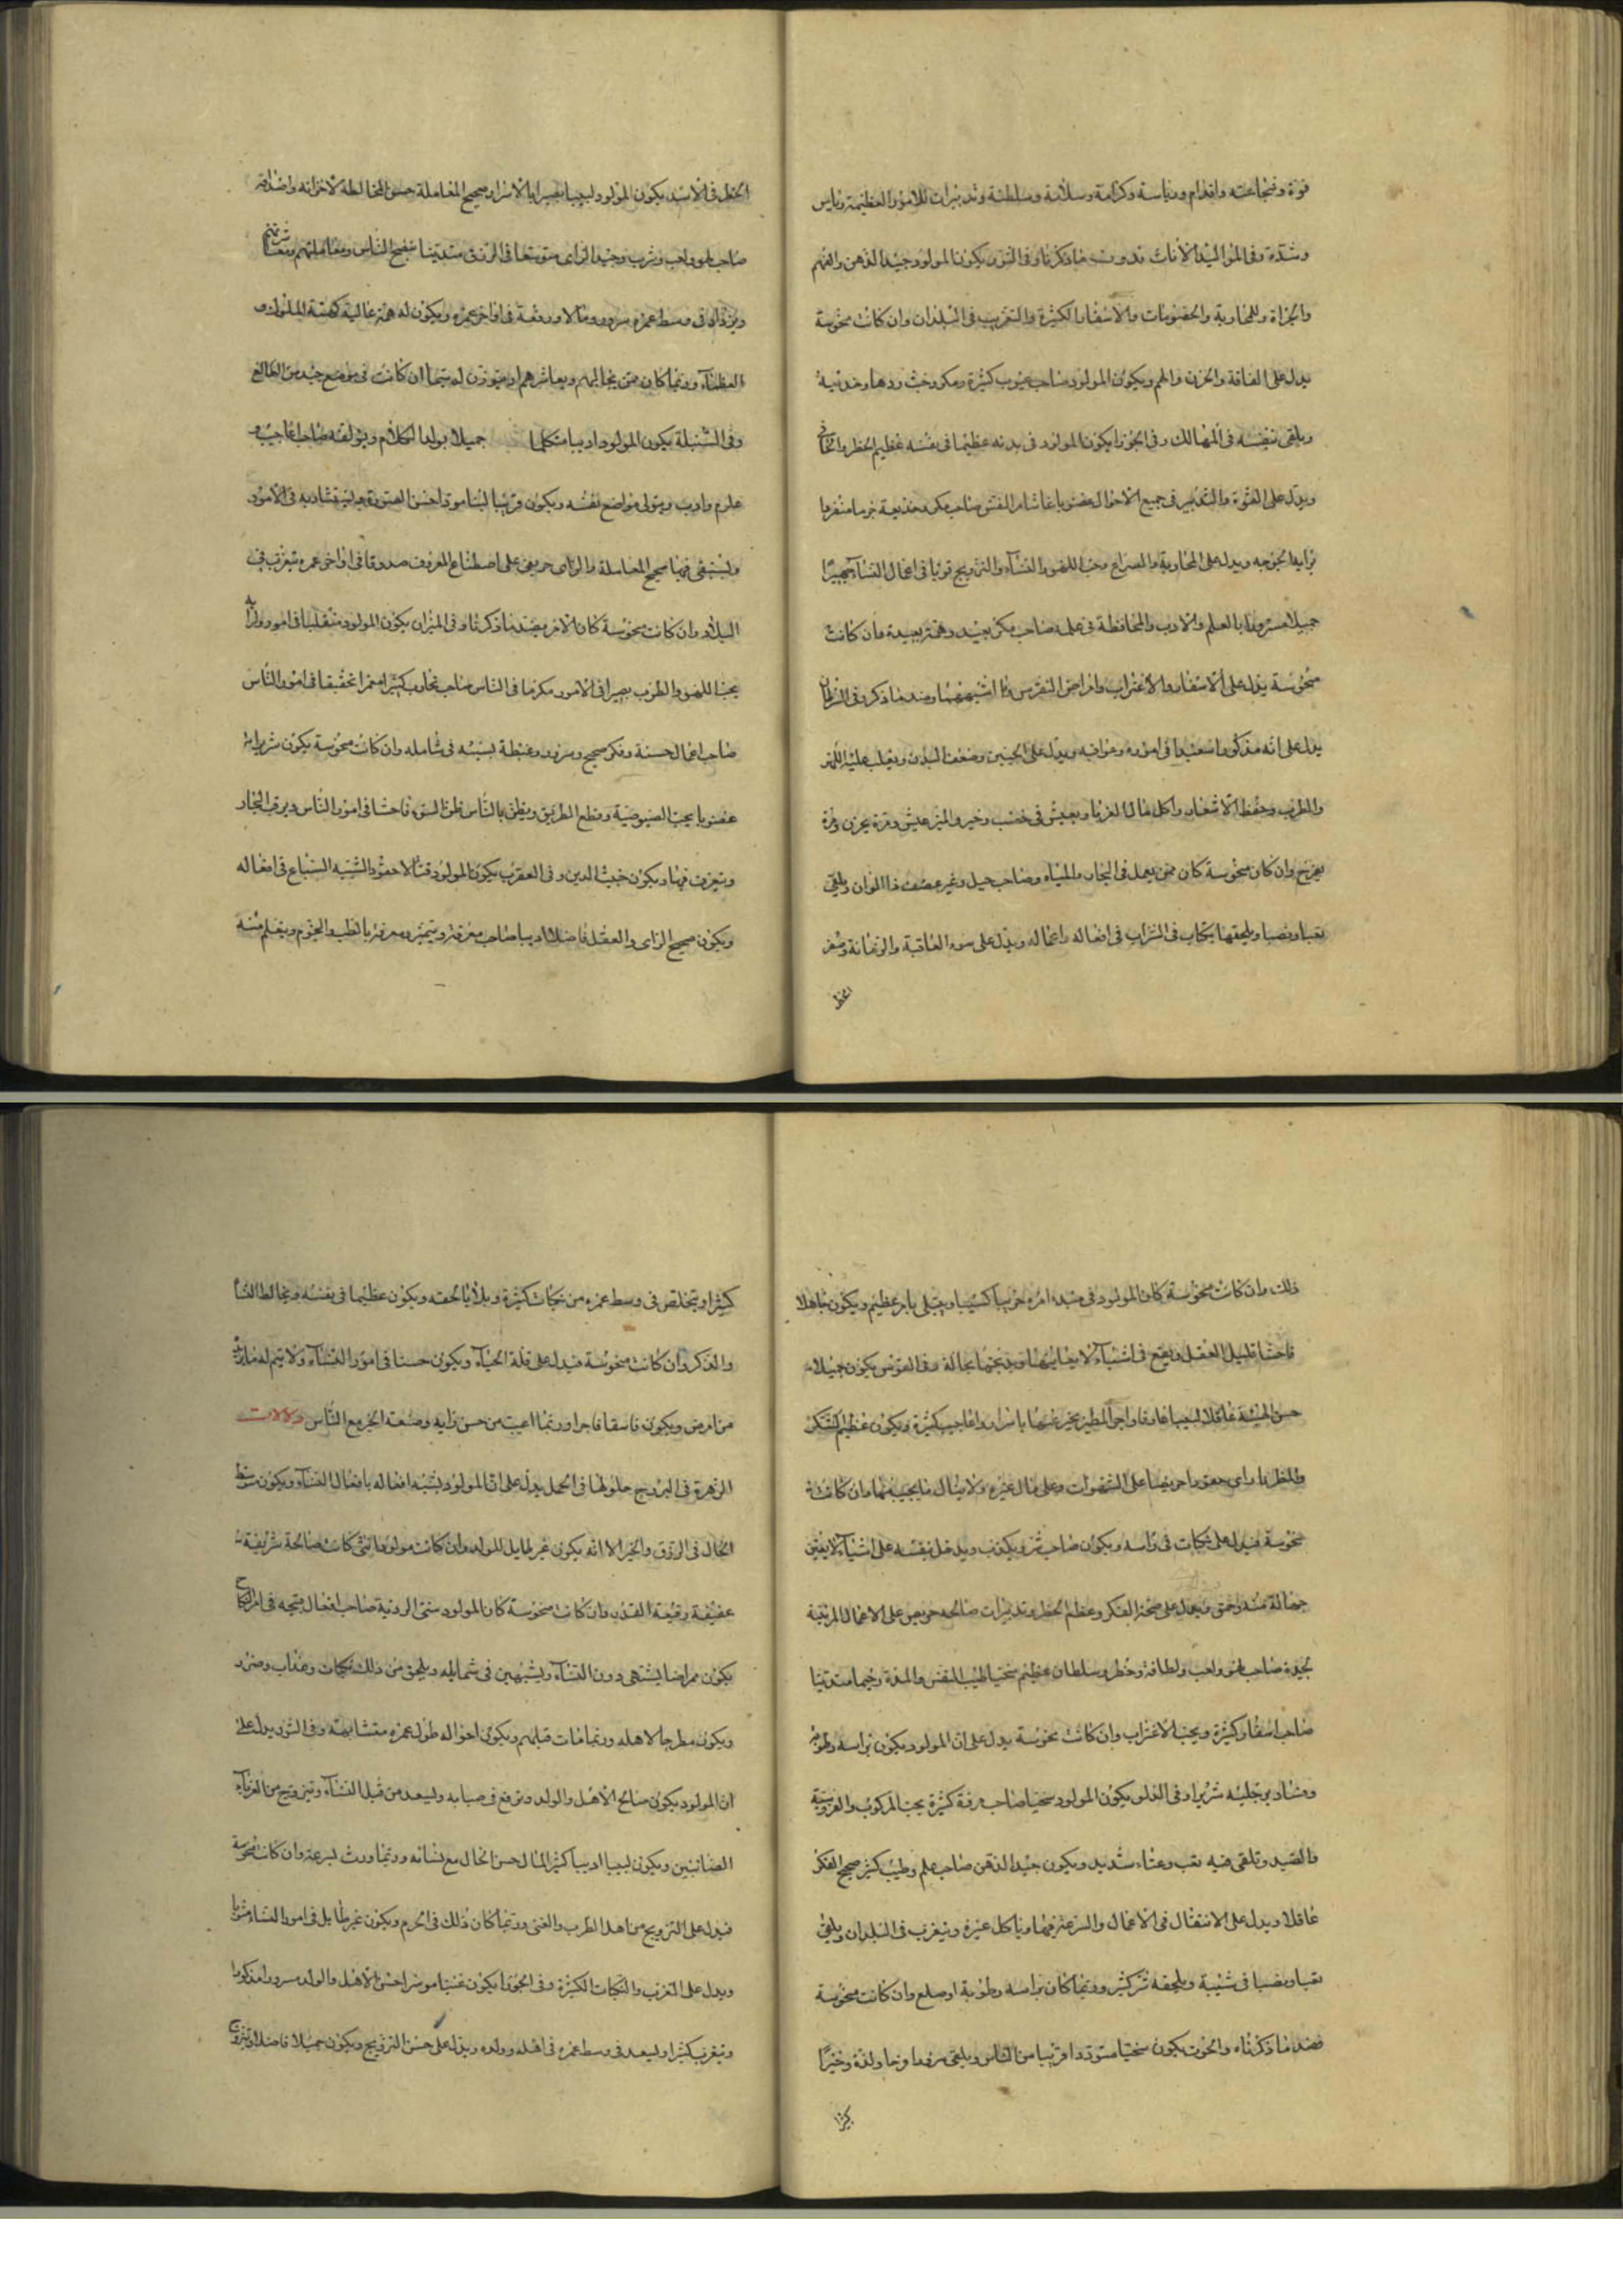 قوة وشجاعته واقدام ورياسة وكرامة وسلامة وسلطنة وتدبيرات للامور العظيمة وباس
وشدة وفى المواليد الاناث بدون ما ذكرنا وفى الثور يكون المولود جيد الذهن والفهم
والجراة والمحاربة والخصومات والاسفار الكثيرة والتغرب فى البلدان وان كانت منحوسة
يدل على الفاقة والحزن والهم ويكون المولود صاحب عيوب كثيرة ومكر وخبث ودها وخديعة
ويلقى بنفسه فى المهالك وفى الجوزا يكون المولود فى بدنه عظيما فى نفسه عظيم الخطر
ويدل على القوة والتدبير فى جميع الاحوال غضوبا غاشما من النفس صاحب مكر وخديعة حزما منفردا
برايه الخوجه ويدل على المحاربة والصراع محب اللهو والنساء والتزويج قويا فى اعمال النساء
جميلا مسرورا بالعلم والادب والمحافظة فى علمه صاحب مكر بعيد وهمة بعيدة فان كانت
منحوسة يدل على الاسفار والاغتراب وامراض النقرس وما اشبههما وضد ما ذكر وفى السرطان
يدل على انه مذكورا سعيدا فى اموره وعواقبه ويدل على الجبين وضعف البدن ويغلب عليه اللهو
والطرب وحفظ الاشعار واكل مال الغربا ويعيش فى خصب وخير والين عيش ومرة يحزن ومرة
يفرح وان كان منحوسة كان ممن يعمل فى البحار والمياه وصاحب حيل وغير عصف ذا الوان ويلقى
تعبا ونصبا ويلحقها نكبات فى التراب فى افعاله واعماله ويدل على سوء العاقبة والزمانة وصغر
الخطر
الخطر وفى الاسد يكون المولود لبيبا بصيرا بالاسرار صحيح المعاملة حسن المخالطة لاخوانه واصدقائه
صاحب لهو ولعب وشرب وجيد الراى متوسعا فى الرزق متدينا ينصح الناس ومعاملتهم
ويزداد فى وسط عمره سرورا ومالا ورفعة فى اواخر عمره ويكون له همة عالية كهمة الملوك و
العظماء وربما كان ممن يخالطهم ويعاشرهم او يتوزن له سيما ان كانت فى موضع جيد من الطالع
وفى السنبلة يكون المولود اديبا متكلما جميلا يولد الكلام ويؤلفه صاحب اعاجيب و
علوم وادب ويتولى مواضع نفسه ويكون قريبا لبناموت احسن الصورة ويستشار به فى الامور
ويستقصى فيها صحيح المعاملة والراى حريص على اصطناع المعروف صدوقا فى اواخر عمره يتغرب فى
البلاد وان كانت منحوسة كان الامر بضد ما ذكرنا وفى الميزان يكون المولود متقلبا فى امور وراية
يحب اللهو والطرب بصيرا فى الامور مكرما فى الناس صاحب تجارب كثيرا معمرا تحقيقا فى امور الناس
صاحب اعمال حسنة وفكر صحيح وسرور وغبطة بسببه فى شامله وان كانت منحوسة يكون شريرا
غضوبا يحب اللصوصية وقطع الطريق ويظن بالناس ظن السوء فاحشا فى امور الناس ويركب البحار
ويعزف فيها ويكون خبيث الدين وفى العقرب يكون المولود قتالا حقود الشبيه السباع فى افعاله
ويكون صحيح الراى والعقل فاضلا اديبا صاحب معرفة وتميز ومعرفة بالطب والنجوم ويتعلم منه
ذلك وان كانت منحوسة كان المولود فى مبداء امره حزينا كئيبا ويبتلى بامر عظيم ويكون جاهلا
فاحشا قليل العقل ويقع فى اشياء لا يعاينها وبذبحتها بحالة وفى القوس يكون جميلا
حسن الهيئة عاقلا لبيبا عارفا واجر المطير يخبر عنها باسرار واعاجيب كثيرة ويكون عظيم الفكر
والخطر با راى حمق واحريصا على الشهوات وعلى مال غيره ولا ينال ما يحبب منها وان كانت
منحوسة فيدل على نكبات فى راسه ويكون صاحب شر ويكذب ويدخل نفسه على اشياء لا يفتن
جهالة منه وحمق ويدل على صحة الفكر وعظم الخطر وتدبيرات صالحه حريص على الاعمال المرتبة
بجيدة صاحب لهو ولعب ولطافة وخطر وسلطان عظيم سخيا طيب النفس والمدة رحيما متدينا
صاحب اسفار كثيرة ويحب الاغتراب وان كانت نحوسة يدل على ان المولود يكون براسه رطوبة
وفساد برجليه شريرا وفى الدلو يكون المولود سخيا صاحب معرفة كثيرة يحب الركوب والفروسية
والصيد وتلقى فيه تعب وعناء شديد ويكون جيد الذهن صاحب علم وطيب كثير صحيح الفكر
عاقلا ويدل على الانتقال فى الاعمال والسرعة فيها وياكل غيره ويتغرب فى البلدان ويلقى
تعبا ونصبا فى شبيبة ويلحقه شر كثير وربما كان براسه رطوبة او صلع وان كانت منحوسة
فضد ما ذكرناه والحوت يكون سخيا متوددا قريبا من الناس ويلقى سرورا وجاها ولذة وخيرا
كثيرا
كثيرا ويتخلص فى وسط عمره من نكبات كثيرة وبلايا لحقه ويكون عظيما فى نفسه ويخالط النساء
والفكر وان كانت منحوسة فيدل على قلة الحياء ويكون حسنا فى امور النساء ولا يتم له ما يريد
من امرض ويكون فاسقا فاجرا وربما اعيب من حسن رايه وصنعة الخير مع الناس دلالات
الزهرة فى البروج حلولها فى الحمل يدل على ان المولود يشبه افعاله بافعال النساء ويكون متوسط
الحال فى الرزق والخير الا انه يكون غير طايل للولد وان كانت مولودة انثى كانت صالحة شريفة
عفيفة رفيعة القدر وان كانت منحوسة كان المولود سئى الروية صاحب افعال قبيحة فى امر النكاح
يكون ممراضا يشتهى دون النساء ويشبههن فى شمايله ويلحق من ذلك نكبات وعذاب وضرر
ويكون مطرحا لاهله وربما مات قبلهم ويكون احواله طول عمره متشابهة وفى الثور يدل على
ان المولود يكون صالح الاهل والولد وترفع فى صبايه ويسعد من قبل النساء ويتزوج من الغرباء
الصائبين ويكون لبيبا اديبا كثير المال حسن الحال مع نسائه وربما ورث بسرعة وان كانت منحوسة
فيدل على التزويج من اهل الطرب والغنى وربما كان ذلك فى الحرم ويكون غير طايل فى امور النساء
ويدل على التغرب والنكبات الكثيرة وفى الجوزا يكون غنيا موسرا حسن الاهل والولد مسرورا مذكورا
ويتغرب كثيرا ويسعد فى وسط عمره فى اهله وولده ويدل على حسن التزويج ويكون جميلا فاضلا ويتزوج